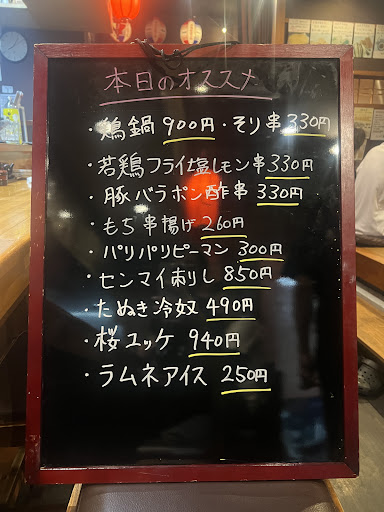 本日のオススメ
・鶏鍋 900円 ・そり串 330円
・若鶏フライ塩レモン串 330円
・豚バラポン酢串 330円
・もち串揚げ 260円
・パリパリピーマン 300円
・センマイ刺し 850円
・たぬき冷奴 490円
・桜ユッケ 940円
・ラムネアイス 250円